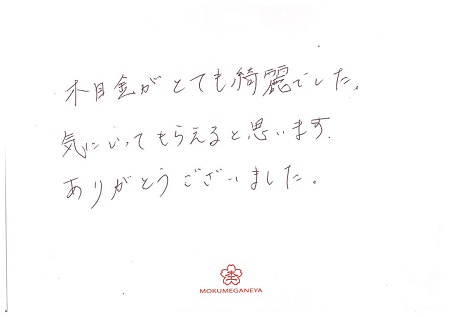 木目金がとても綺麗でした。
気にいってもらえると思います.
ありがとうございました。
MOKUMEGANEYA